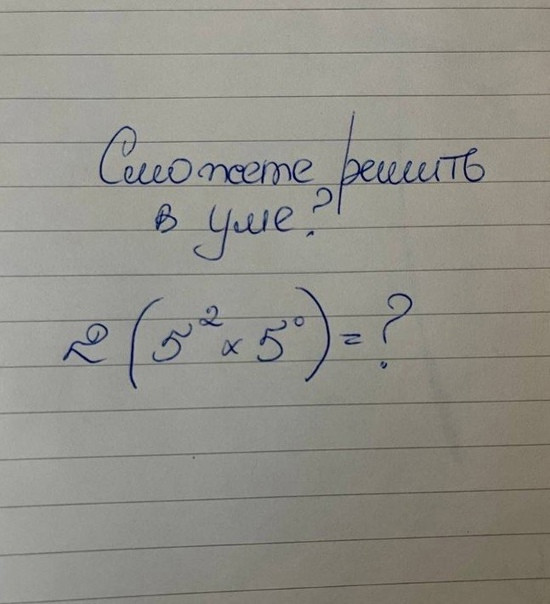 Сможете решить
в уме?
2 (5² × 5⁰) = ?